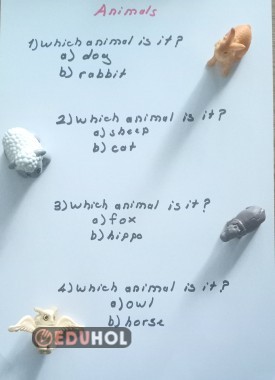 Animals
1) which animal is it?
a) dog
b) rabbit
2) which animal is it?
a) sheep
b) cat
3) which animal is it?
a) fox
b) hippo
4) which animal is it?
a) owl
b) horse
EDUHOL